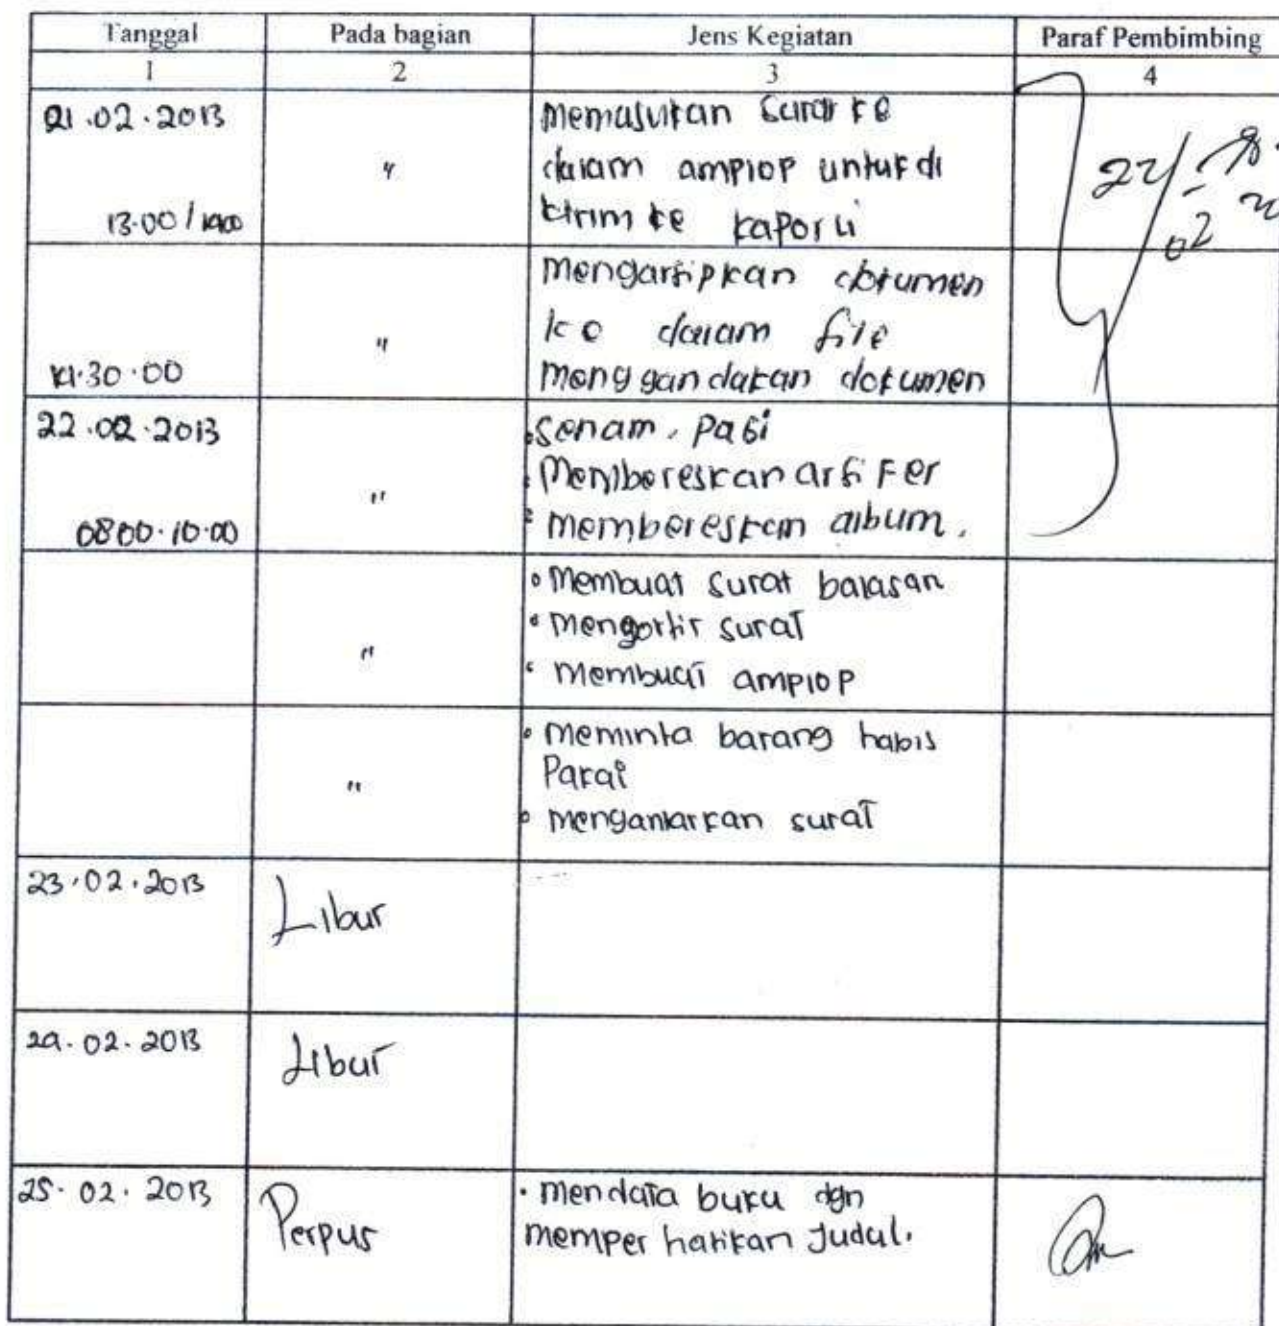 Tanggal Pada bagian Jens Kegiatan Paraf Pembimbing
1 2 3 4
21.02.2013 memasukan surat ke
" dalam amplop untuk di
13.00 / kirim ke kaporli
mengarsipkan dokumen
" ke dalam file
14.30.00 menggandakan dokumen
22.02.2013 senam pagi
" Membereskan arsi Fer
0800.10.00 membereskan album.
• Membuat surat balasan
• Mengortir surat
" • Membuat amplop
• meminta barang habis
" Pakai
• mengantarkan surat
23.02.2013 Libur
24.02.2013 Libur
25.02.2013 Perpus • mendata buku dgn
memper hatikan Judul.
22/02